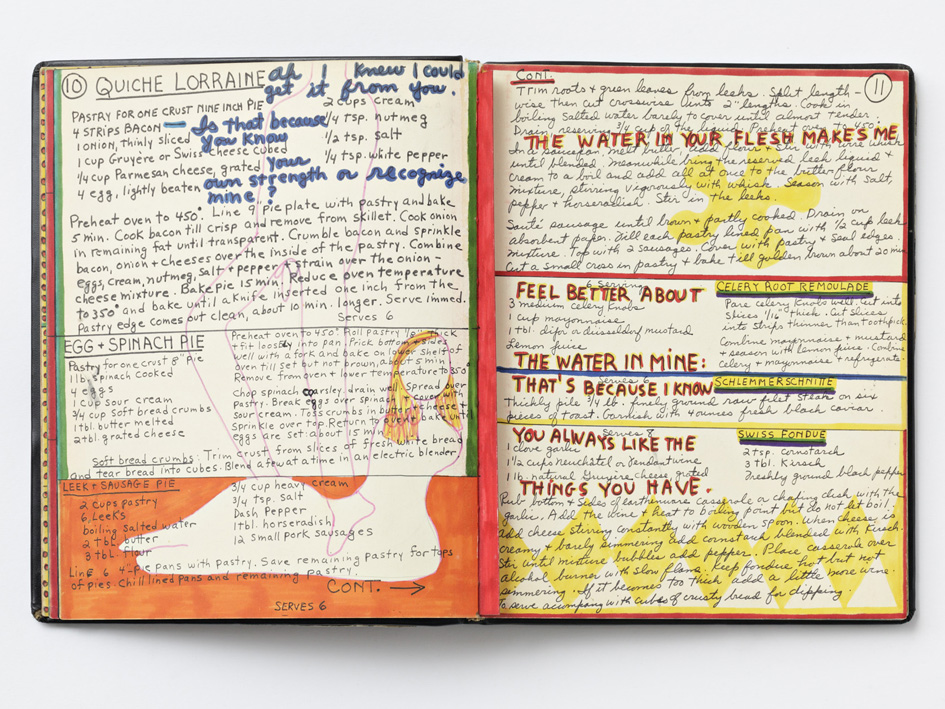 10 QUICHE LORRAINE
ah I knew I could
get it from you.
PASTRY FOR ONE CRUST NINE INCH PIE
4 STRIPS BACON
1 ONION, thinly sliced
1 CUP Gruyère or Swiss cheese cubed
1/4 cup Parmesan cheese, grated
4 egg, lightly beaten
2 cups cream
1/4 tsp. nutmeg
1/2 tsp. salt
1/4 tsp. white pepper
— Is that because
you know
your
own strength or recognize
mine?
Preheat oven to 450°. Line 9" pie plate with pastry and bake
5 min. Cook bacon till crisp and remove from skillet. Cook onion
in remaining fat until transparent. Crumble bacon and sprinkle
bacon, onion + cheeses over the inside of the pastry. Combine
eggs, cream, nutmeg, salt + pepper + strain over the onion-
cheese mixture. Bake Pie 15 min. Reduce oven temperature
to 350° and bake until a knife inserted one inch from the
Pastry edge comes out clean, about 10 min. longer. Serve immed.
Serves 6
EGG + SPINACH PIE
Pastry for one crust 8" Pie
1 lb. spinach Cooked
4 eggs
1 cup Sour cream
3/4 cup Soft bread crumbs
1 tbl. butter melted
2 tbl. grated cheese
Preheat oven to 450°. Roll pastry 1/8" thick
+ fit loosely into pan. Prick bottom +
well with a fork and bake on lower shelf of
oven till set but not brown, about 5 min.
Remove from oven + lower temperature to 350°
Chop spinach parsley, drain well. Spread over
pastry. Break eggs over spinach. Cover with
Sour cream. Toss crumbs in butter, cheese +
Sprinkle over top. Return to oven + bake until
eggs are set: about 15 min.
Soft bread crumbs: Trim crust from slices of fresh white bread
and tear bread into cubes. Blend a few at a time in an electric blender.
LEEK + SAUSAGE PIE
2 cups pastry
6 Leeks
boiling salted water
2 tbl. butter
3 tbl. flour
3/4 cup heavy cream
3/4 tsp. Salt
Dash Pepper
1 tbl. horseradish
12 Small pork sausages
Line 6 4" pie pans with pastry. Save remaining pastry for tops
of pies. Chill lined pans and remaining pastry.
CONT. →
SERVES 6
CONT.
11
Trim roots + green leaves from leeks. Split length-
wise then cut crosswise into 2" lengths. Cook in
boiling salted water barely to cover until almost tender.
Drain, reserving 3/4 cup of the liquid. Preheat oven to 450°.
THE WATER IN YOUR FLESH MAKES ME
In a saucepan melt butter, add flour + stir with wire whisk
until blended. Meanwhile bring the reserved leek liquid +
cream to a boil and add all at once to the butter-flour
mixture, stirring vigorously with whisk. Season with salt,
pepper + horseradish. Stir in the leeks.
Sauté sausage until brown + partly cooked. Drain on
absorbent paper. Fill each pastry lined pan with 1/2 cup leek
mixture. Top with 2 sausages. Cover with pastry + seal edges.
Cut a small cross in pastry + bake till golden brown about 20 min.
6 Servings
FEEL BETTER ABOUT
3 medium celery knobs
1 cup mayonnaise
1 tbl. dijon or düsseldorf mustard
Lemon juice
THE WATER IN MINE:
CELERY ROOT REMOULADE
Pare celery knobs well. Cut into
slices 1/16" thick. Cut slices
into strips thinner than toothpick.
Combine mayonnaise + mustard
+ season with lemon juice. Combine
celery + mayonnaise + refrigerate.
THAT'S BECAUSE I KNOW
Serves 6
SCHLEMMERSCHNITTE
Thickly pile 3/4 lb. finely ground raw filet steak on six
pieces of toast. Garnish with 4 ounces fresh black caviar.
YOU ALWAYS LIKE THE
Serves 8
SWISS FONDUE
1 clove garlic
1 1/2 cups neuchâtel or fendant wine
1 lb. natural Gruyère cheese, grated
2 tsp. cornstarch
3 tbl. Kirsch
Freshly ground black pepper
THINGS YOU HAVE.
Rub bottom + sides of earthenware casserole or chafing dish with the
garlic. Add the wine + heat to boiling point but do not let boil.
add cheese stirring constantly with wooden spoon. When cheese is
creamy + barely simmering add cornstarch blended with kirsch.
Stir until mixture bubbles add pepper. Place casserole over
alcohol burner with slow flame. Keep fondue hot but not
simmering. If it becomes too thick add a little more wine.
To serve accompany with cubes of crusty bread for dipping.